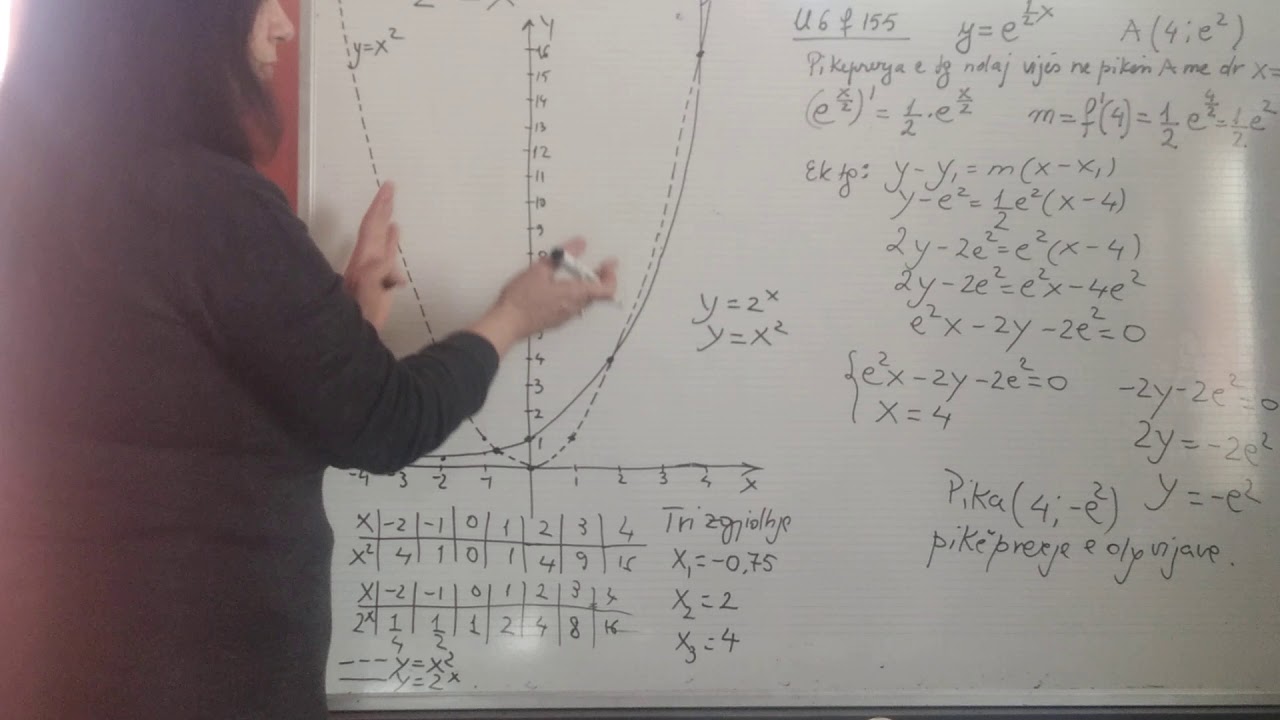 y=x²
Y
16
15
14
13
12
11
10
9
4
3
2
1
-4 -3 -2 -1 1 2 3 4 X
y = 2ˣ
y = x²
X | -2 | -1 | 0 | 1 | 2 | 3 | 4
X² | 4 | 1 | 0 | 1 | 4 | 9 | 16
X | -2 | -1 | 0 | 1 | 2 | 3 | 4
2ˣ | 1/4 | 1/2 | 1 | 2 | 4 | 8 | 16
--- y = x²
— y = 2ˣ
Tri zgjidhje
X₁ = -0,75
X₂ = 2
X₃ = 4
U 6 f 155 y = e^(1/2 x) A(4; e²)
Pikeprerja e tg ndaj vijës ne pikën A me dr X=
(e^(x/2))' = 1/2 · e^(x/2) m = f'(4) = 1/2 e^(4/2) = 1/2 e²
Ek tg: y - y₁ = m(x - x₁)
y - e² = 1/2 e²(x - 4)
2y - 2e² = e²(x - 4)
2y - 2e² = e²x - 4e²
e²x - 2y - 2e² = 0
{ e²x - 2y - 2e² = 0
X = 4
-2y - 2e² = 0
2y = -2e²
y = -e²
Pika (4; -e²)
pikëprerje e dy vijave.